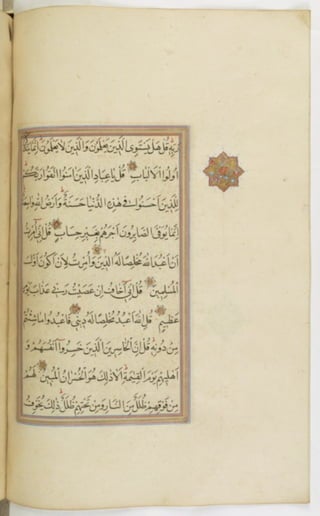 رَبِّهِ قُلْ هَلْ يَسْتَوِى الَّذِينَ يَعْلَمُونَ وَالَّذِينَ لَا يَعْلَمُونَ إِنَّمَا يَتَذَكَّرُ
أُولُوا الْأَلْبَابِ قُلْ يَا عِبَادِ الَّذِينَ آمَنُوا اتَّقُوا رَبَّكُمْ
لِلَّذِينَ أَحْسَنُوا فِى هَذِهِ الدُّنْيَا حَسَنَةٌ وَأَرْضُ اللَّهِ وَاسِعَةٌ
إِنَّمَا يُوَفَّى الصَّابِرُونَ أَجْرَهُمْ بِغَيْرِ حِسَابٍ قُلْ إِنِّى أُمِرْتُ
أَنْ أَعْبُدَ اللَّهَ مُخْلِصًا لَهُ الدِّينَ وَأُمِرْتُ لِأَنْ أَكُونَ أَوَّلَ
الْمُسْلِمِينَ قُلْ إِنِّى أَخَافُ إِنْ عَصَيْتُ رَبِّى عَذَابَ يَوْمٍ
عَظِيمٍ قُلِ اللَّهَ أَعْبُدُ مُخْلِصًا لَهُ دِينِى فَاعْبُدُوا مَا شِئْتُمْ
مِنْ دُونِهِ قُلْ إِنَّ الْخَاسِرِينَ الَّذِينَ خَسِرُوا أَنْفُسَهُمْ وَ
أَهْلِيهِمْ يَوْمَ الْقِيٰمَةِ أَلَا ذَلِكَ هُوَ الْخُسْرَانُ الْمُبِينُ لَهُمْ
مِنْ فَوْقِهِمْ ظُلَلٌ مِنَ النَّارِ وَمِنْ تَحْتِهِمْ ظُلَلٌ ذَلِكَ يُخَوِّفُ